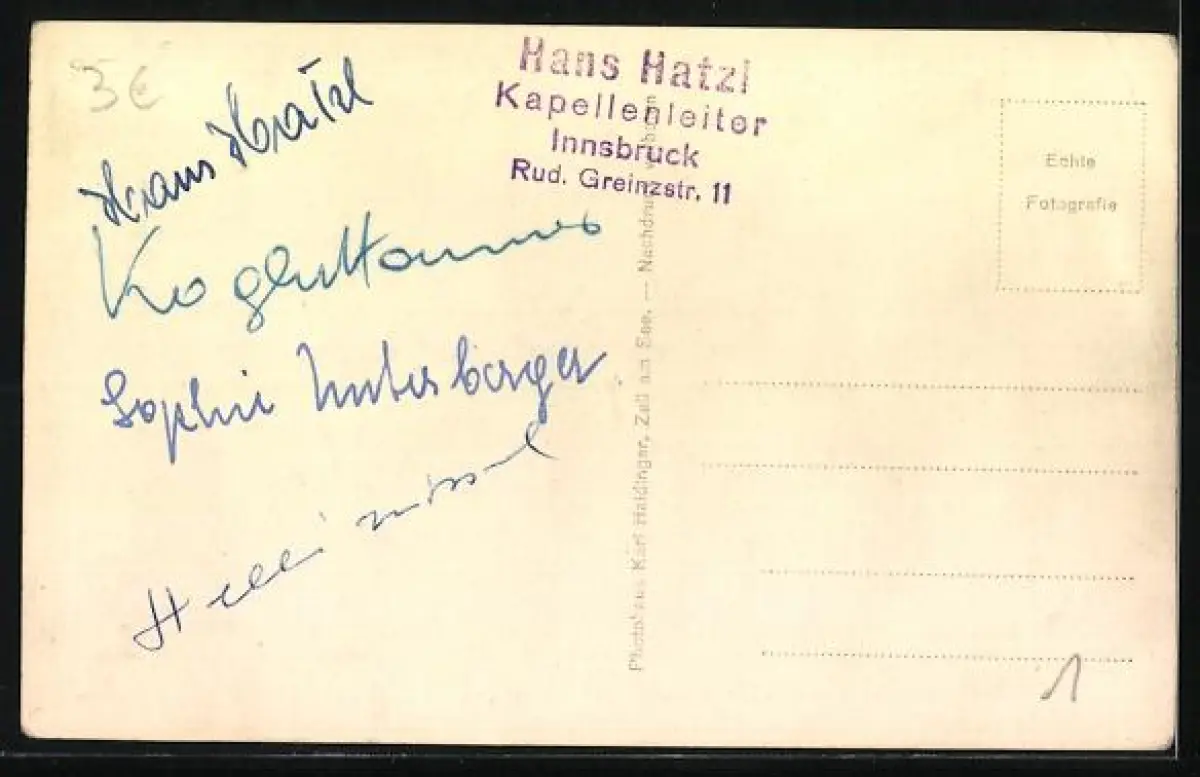 3 €
Hans Hatzl
Kogler Hannes
Sophie Unterberger
Helli
Hans Hatzl
Kapellenleiter
Innsbruck
Rud. Greinzstr. 11
Photohaus Karl Haidinger, Zell am See. — Nachdruck verboten
Echte
Fotografie
1